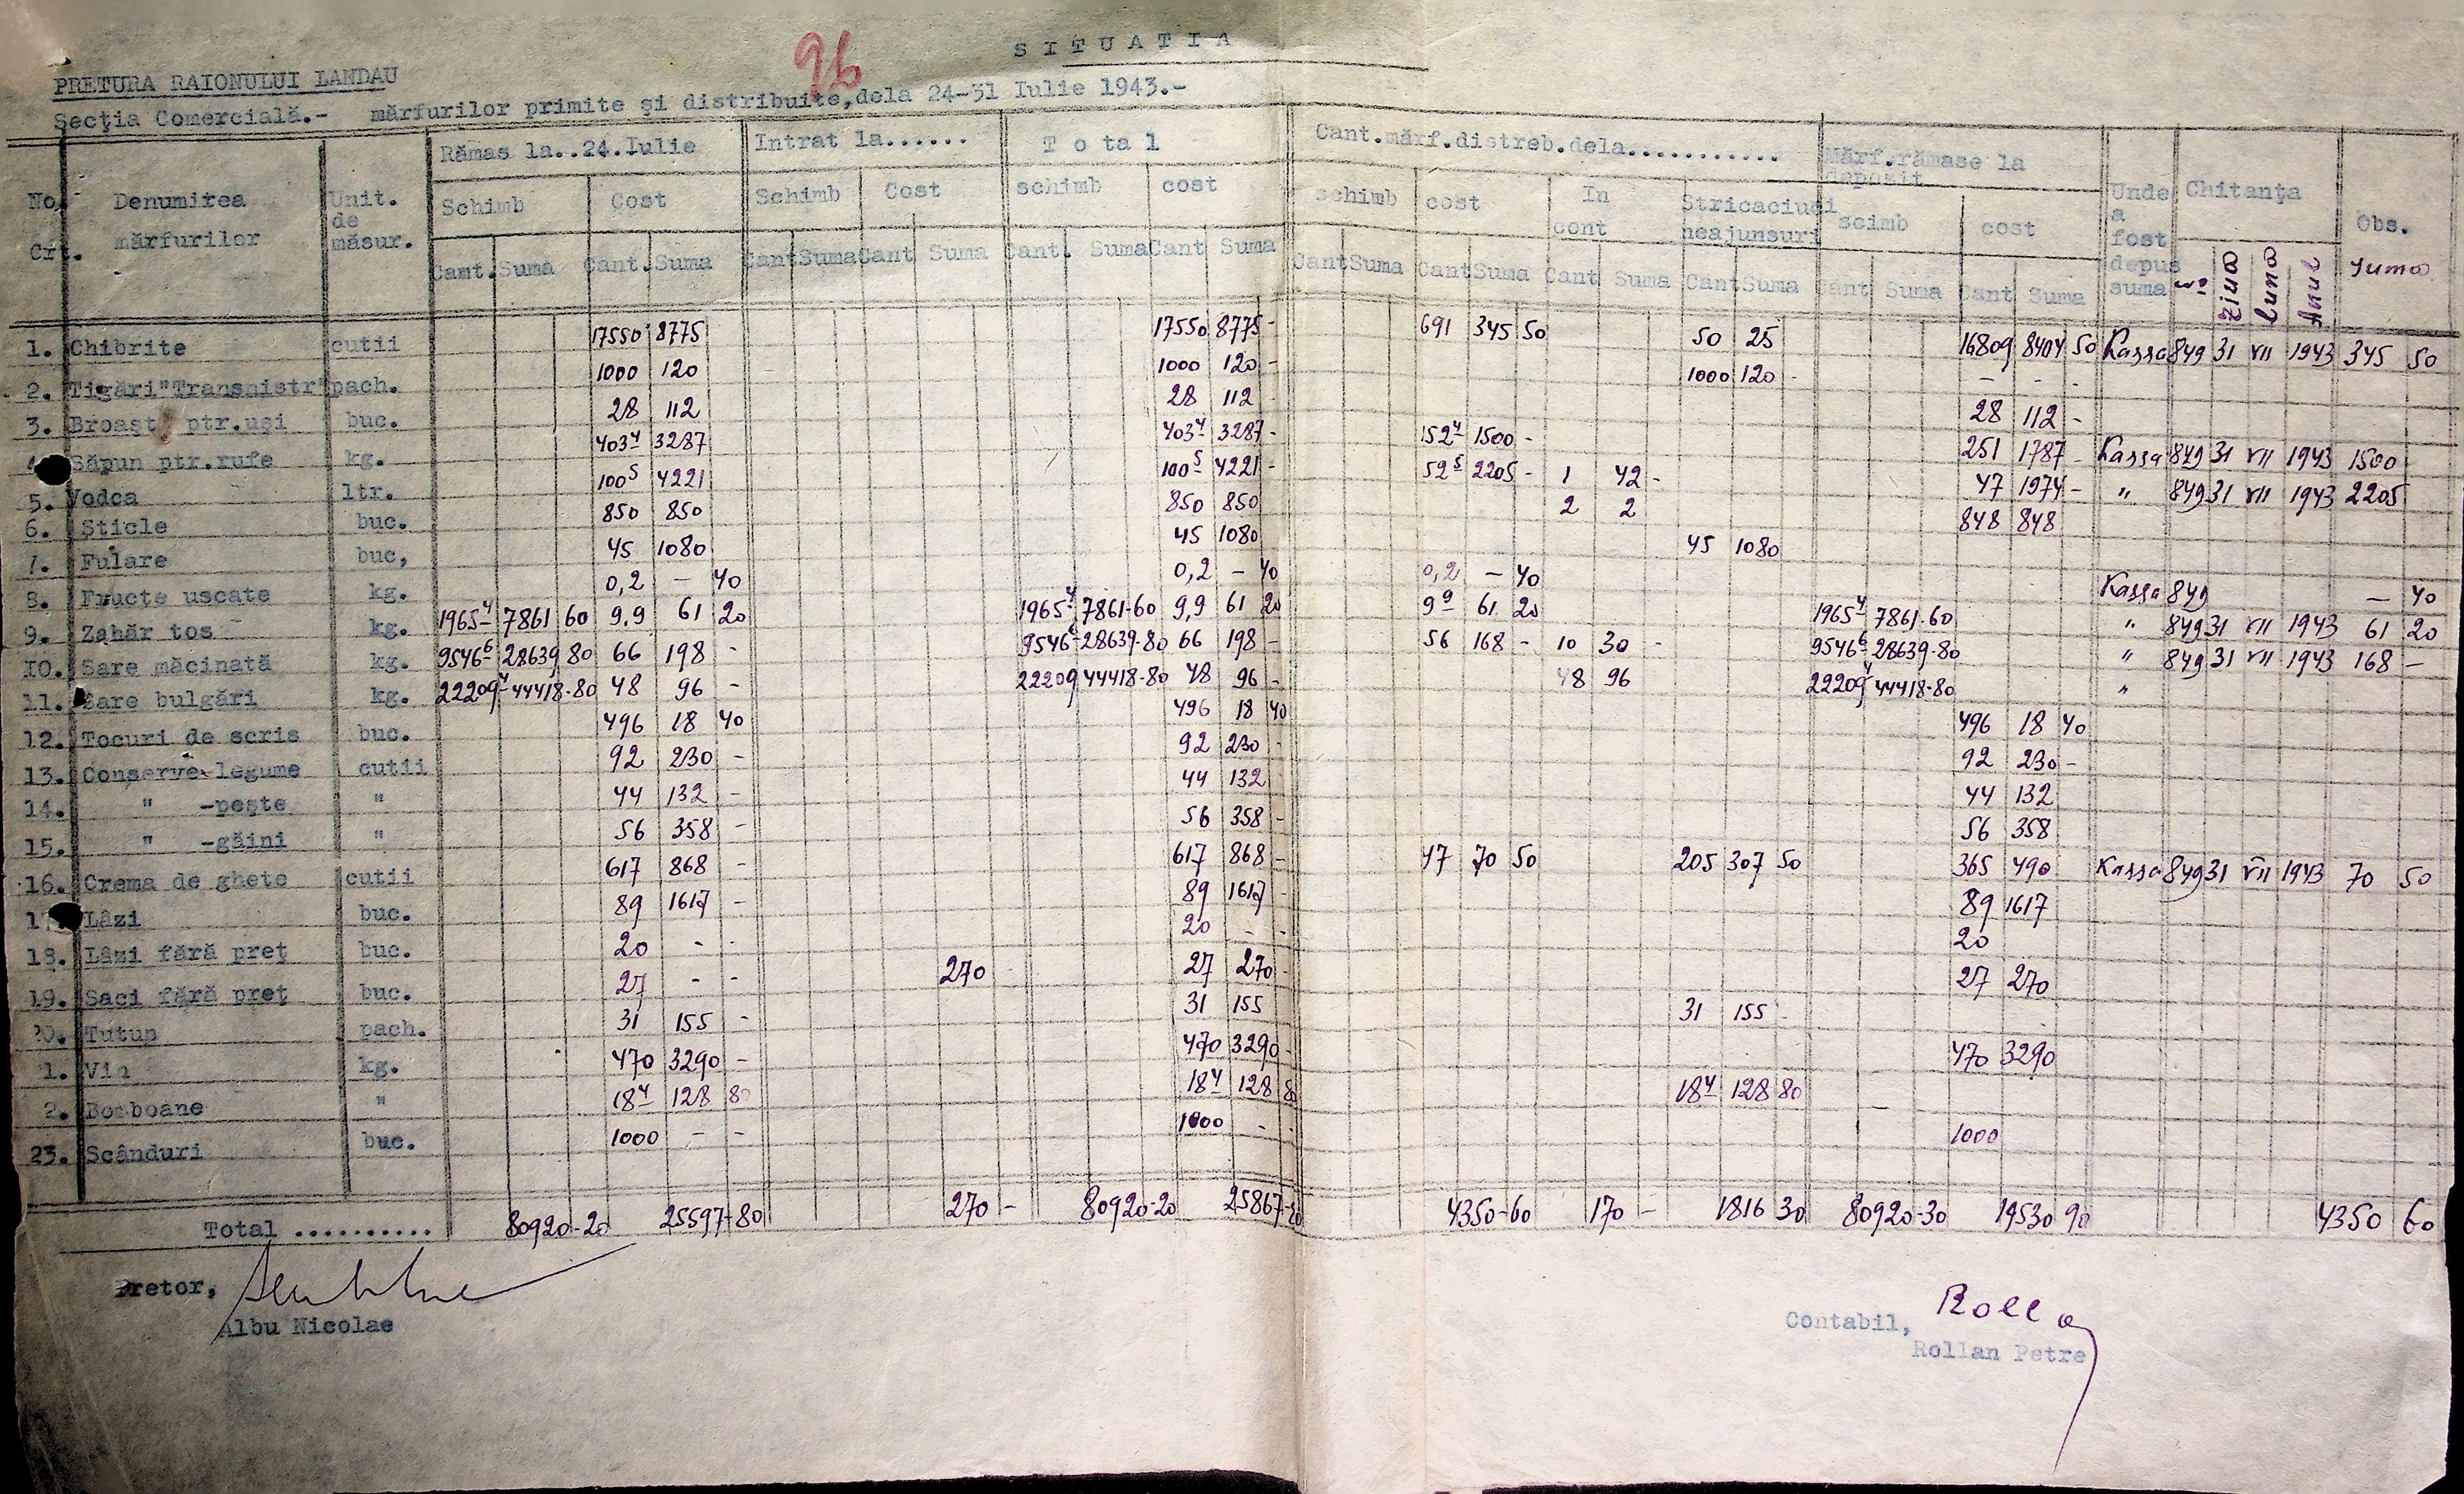 96
SITUATIA
PRETURA RAIONULUI LANDAU
Secţia Comercială.- mărfurilor primite şi distribuite,dela 24-31 Iulie 1943.-
No. Crt. Denumirea mărfurilor Unit. de măsur. Rămas la..24.Iulie Intrat la...... Total Cant.mărf.distreb.dela........... Mărf.rămase la depozit Unde a fost depus suma Chitanţa Obs.
Schimb Cost Schimb Cost schimb cost schimb cost In cont Stricaciuni neajunsuri scimb cost No Ziua Luna Anul Suma
Cant.Suma Cant.Suma Cant Suma Cant Suma Cant. Suma Cant Suma Cant Suma Cant Suma Cant Suma Cant Suma Cant Suma Cant Suma
1. Chibrite cutii 17550 8775 17550 8775- 691 345 50 50 25 16809 8404 50 Kassa 849 31 VII 1943 345 50
2. Tigări"Transnistr" pach. 1000 120 1000 120 - 1000 120 - - - -
3. Broaşt ptr.uşi buc. 28 112 28 112 28 112 -
Săpun ptr.rufe kg. 403 4 3287 403 4 3287- 152 4 1500 - 251 1787 - Kassa 849 31 VII 1943 1500
5. Vodca ltr. 100 5 4221 100 5 4221- 52 5 2205 - 1 42- 47 1974- " 849 31 VII 1943 2205
6. Şticle buc. 850 850 850 850 2 2 848 848
7. Fulare buc, 45 1080 45 1080 45 1080
8. Fructe uscate kg. 0,2 - 40 0,2 - 40 0,2 - 40 Kassa 849 - 40
9. Zahăr tos kg. 1965 4 7861 60 9,9 61 20 1965 4 7861-60 9,9 61 20 9 9 61 20 1965 4 7861-60 " 849 31 VII 1943 61 20
10. Sare măcinată kg. 9546 6 28639 80 66 198 - 9546 6 28639-80 66 198 - 56 168 - 10 30 - 9546 6 28639-80 " 849 31 VII 1943 168 -
11. Sare bulgări kg. 22209 4 44418-80 48 96 - 22209 44418-80 48 96 - 48 96 22209 4 44418-80 "
12. Tocuri de scris buc. 496 18 40 496 18 40 496 18 40
13. Conserve-legume cutii 92 230 - 92 230 - 92 230 -
14. " -peşte " 44 132 - 44 132 44 132
15. " -găini " 56 358 - 56 358 - 56 358
16. Crema de ghete cutii 617 868 - 617 868 - 47 70 50 205 307 50 365 490 Kassa 849 31 VII 1943 70 50
17 Lăzi buc. 89 1617 - 89 1617 - 89 1617
18. Lăzi fără preţ buc. 20 - - 20 - - 20
19. Saci fără preţ buc. 27 - - 270 - 27 270 - 27 270
20. Tutun pach. 31 155 - 31 155 31 155 -
1. Vin kg. 470 3290 - 470 3290 - 470 3290
2. Bomboane " 18 4 128 80 18 4 128 80 18 4 128 80
23. Scânduri buc. 1000 - - 1000 - - 1000
Total .......... 80920-20 25597-80 270 - 80920-20 25867-80 4350-60 170 - 1816 30 80920-30 19530 90 4350 60
Pretor,
Albu Nicolae
Contabil, Rolla
Rollan Petre